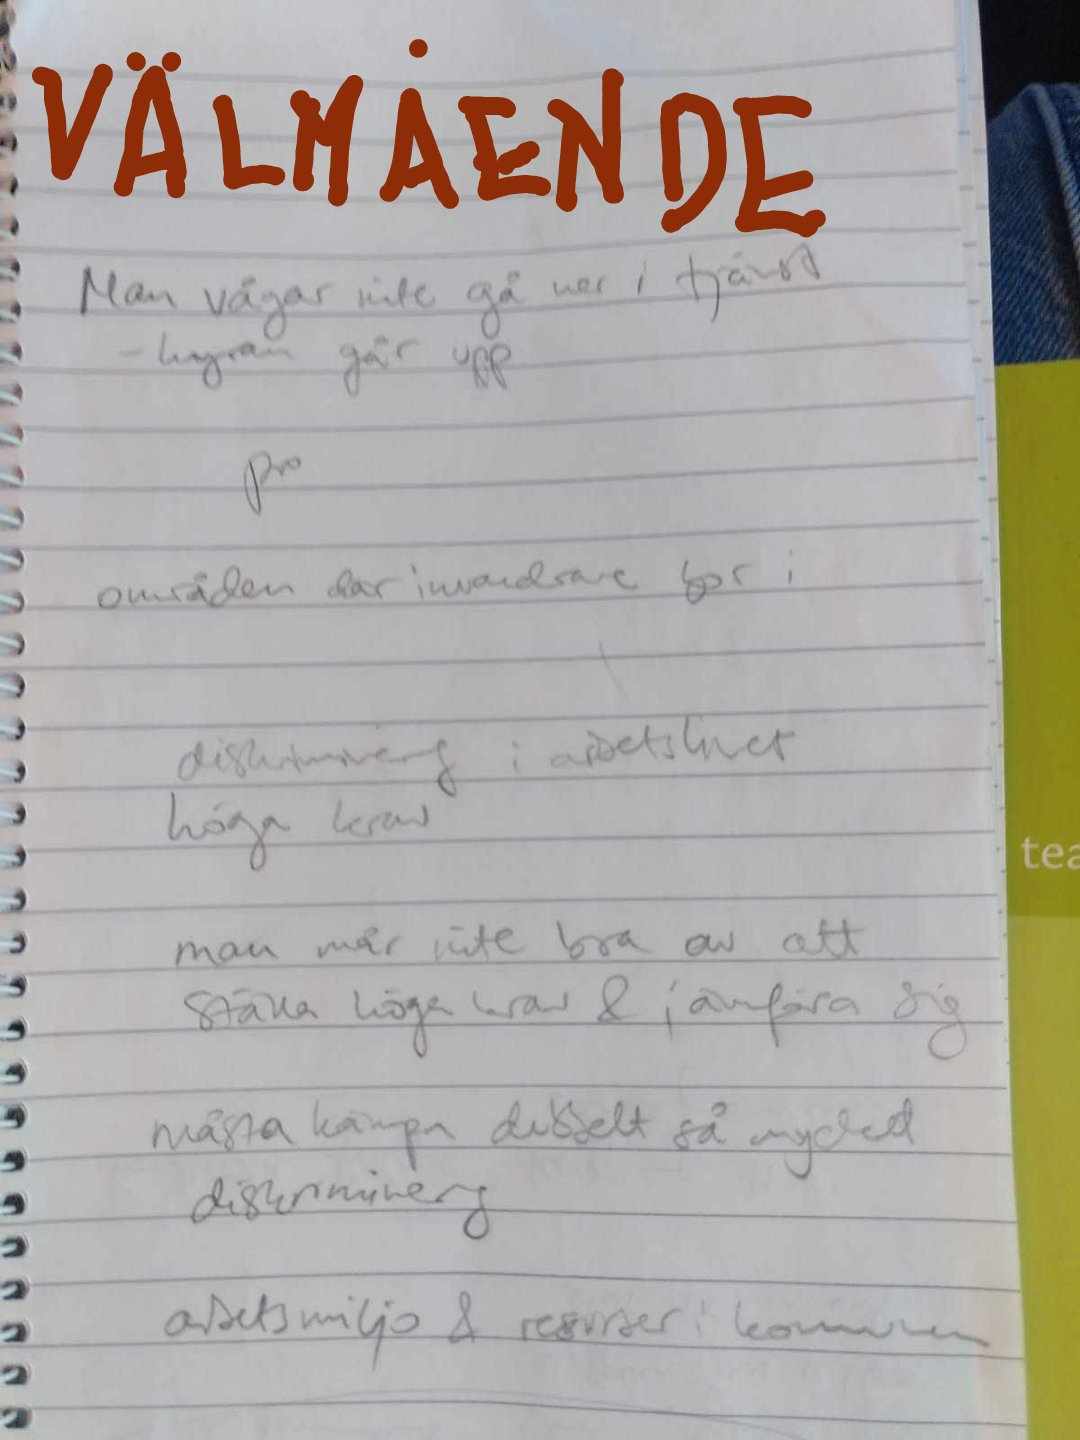 VÄLMÅENDE
Man vågar inte gå ner i tjänst
- hyran går upp
pro
områden där invandrare bor i
diskriminering i arbetslivet
höga krav
man mår inte bra av att
ställa höga krav & jämföra sig
måsta kämpa dubbelt så mycket
diskriminering
arbetsmiljö & resurser i kommunen
tea